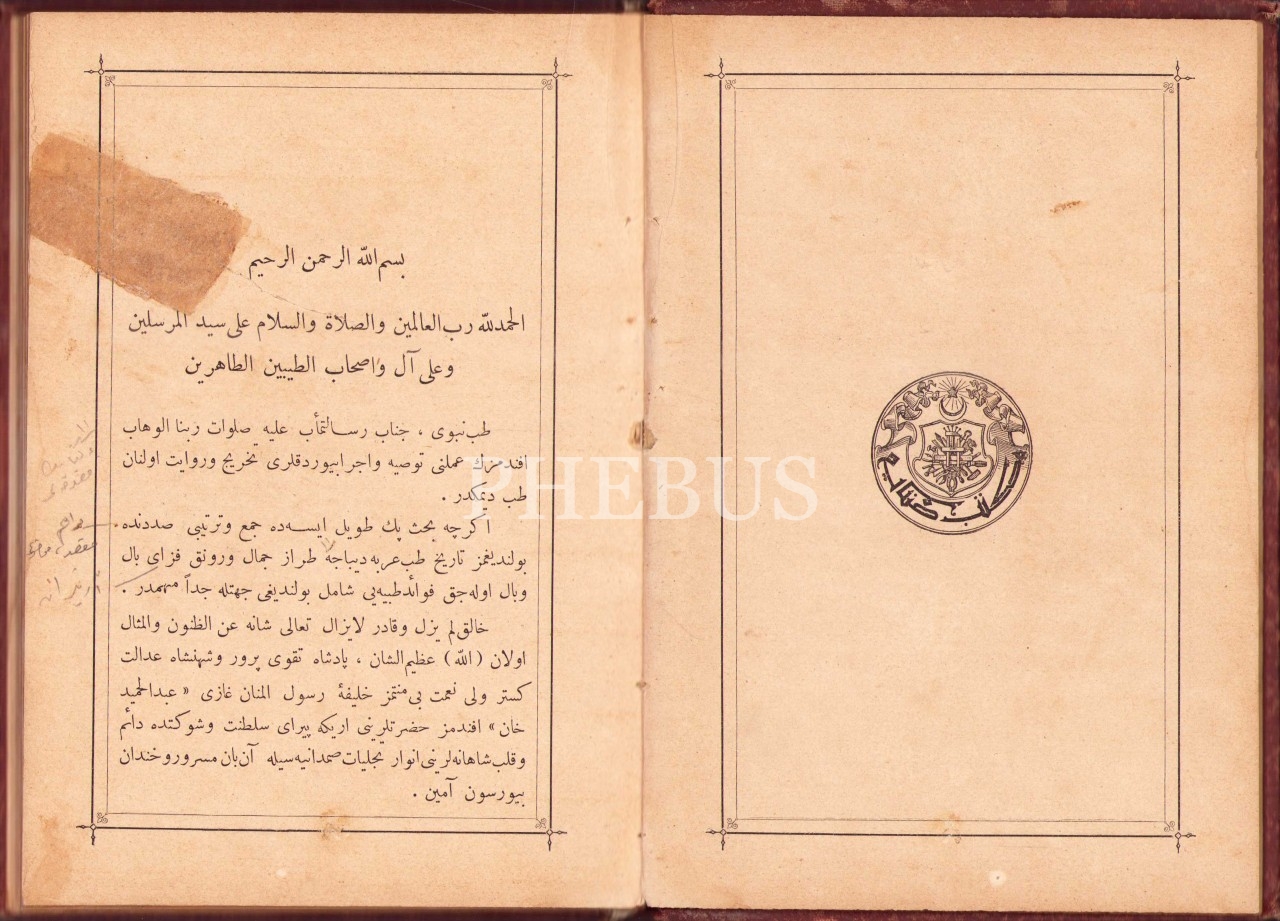 بسم اللّه الرحمن الرحيم
الحمدللّه رب العالمين والصلاة والسلام على سيد المرسلين
وعلى آل واصحاب الطيبين الطاهرين
طب نبوى ، جناب رسالتمأب عليه صلوات ربنا الوهاب
افندمزك عملنى توصيه واجرا بيوردقلرى تخريج وروايت اولنان
طب ديمكدر .
اكرچه بحث پك طويل ايسه‌ده جمع وترتيبى صددنده
بولنديغمز تاريخ طب عربه ديباجهٔ طراز جمال ورونق فزاى بال
وبال اوله‌جق فوائد طبيه‌يى شامل بولنديغى جهتله جداً مهمدر .
خالق لم يزل وقادر لايزال تعالى شانه عن الظنون والمثال
اولان (اللّه) عظيم الشان ، پادشاه تقوى پرور وشهنشاه عدالت
كستر ولى نعمت بى منتمز خليفهٔ رسول المنان غازى « عبدالحميد
خان » افندمز حضرتلرينى اريكه پيراى سلطنت وشوكتده دائم
وقلب شاهانه‌لرينى انوار تجليات صمدانيه‌سيله آن بان مسرور وخندان
بيورسون آمين .
PHEBUS